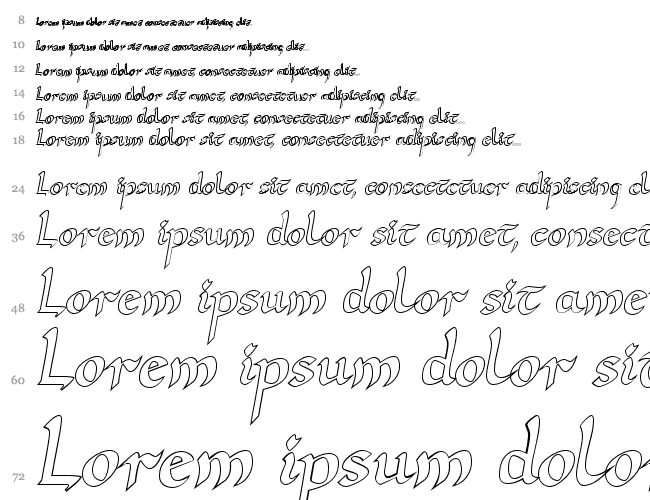 8 Lorem ipsum dolor sit amet, consectetuer adipiscing elit...
10 Lorem ipsum dolor sit amet, consectetuer adipiscing elit...
12 Lorem ipsum dolor sit amet, consectetuer adipiscing elit...
14 Lorem ipsum dolor sit amet, consectetuer adipiscing elit...
16 Lorem ipsum dolor sit amet, consectetuer adipiscing elit...
18 Lorem ipsum dolor sit amet, consectetuer adipiscing elit...
24 Lorem ipsum dolor sit amet, consectetuer adipiscing el
36 Lorem ipsum dolor sit amet, consect
48 Lorem ipsum dolor sit ame
60 Lorem ipsum dolor sit
72 Lorem ipsum dolor